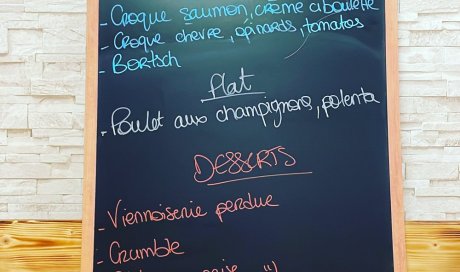 - Croque saumon, crème ciboulette
- Croque chèvre, épinards, tomates
- Bortsch
Plat
- Poulet aux champignons, polenta
DESSERTS
- Viennoiserie perdue
- Crumble